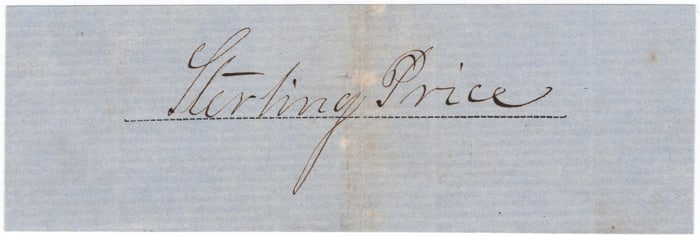 Sterling Price